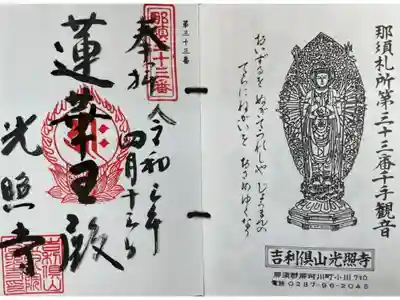 那須札所第三十三番千手観音
おいずるを
てらにねがいを おさめゆくなり
吉利倶山光照寺
那須郡那珂川町小川710
電話 0287-96-2045
第三十三番
那須三十三番
奉拝
令和
四月十三日
蓮華王殿
光照寺